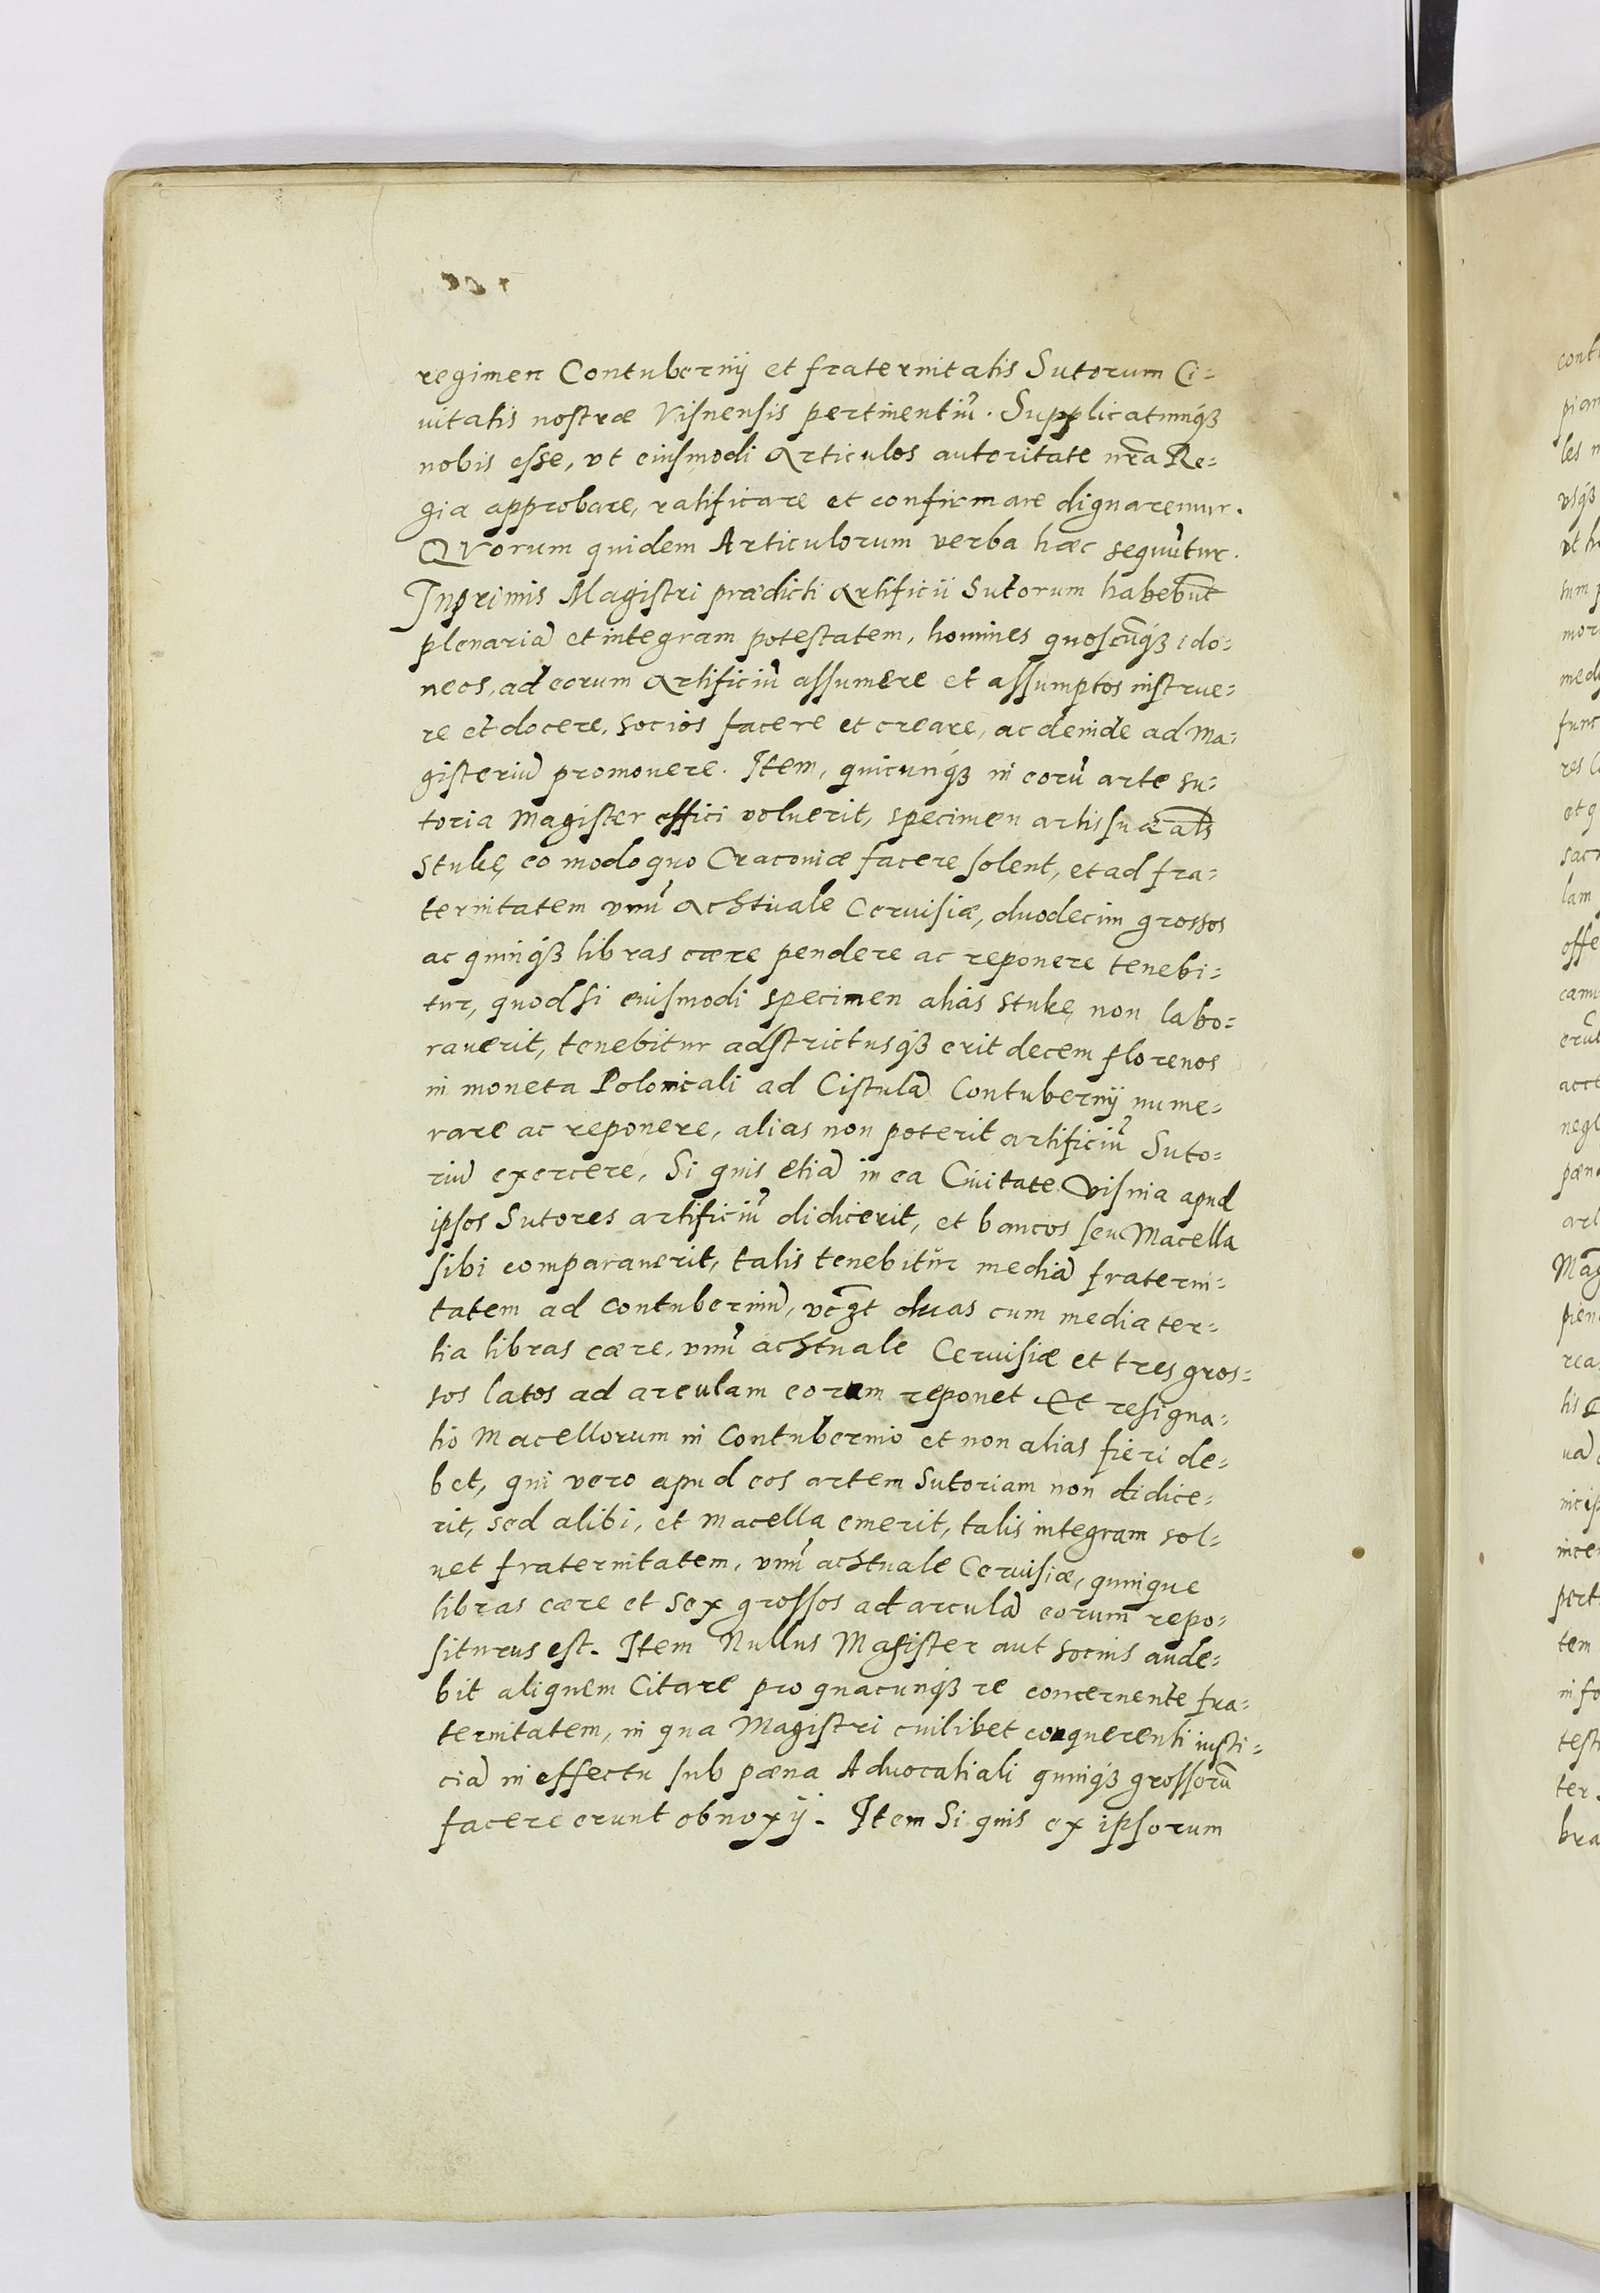 regimen Contubernij et fraternitatis Sutorum Ci-
uitatis nostræ Visnensis pertinentiũ. Supplicatumq́ȝ
nobis esse, vt eiusmodi Articulos autoritate nr̃a Re-
gia approbare, ratificare et confirmare dignaremur.
QVorum quidem Articulorum verba hæc sequũtur.
Inprimis Magistri prædicti Artificii Sutorum habebũt
plenariã et integram potestatem, homines quoscũq́ȝ ido-
neos, ad eorum Artificiũ assumere et assumptos instrue-
re et docere, socios facere et creare, ac deinde ad Ma-
gisteriũ promouere. Item, quicunq́ȝ in eorũ arte su-
toria Magister effici voluerit, specimen artis suæ als̃
stukę eo modo quo Cracouiæ facere solent, et ad fra-
ternitatem vnũ Achtuale Ceruisiæ, duodecim grossos
ac quinq́ȝ libras cære pendere ac reponere tenebi-
tur, quod si eiusmodi specimen alias stukę non labo-
rauerit, tenebitur adstrictusq́ȝ erit decem florenos
in moneta Polonicali ad Cistulã Contubernij nume-
rare ac reponere, alias non poterit artificiũ Suto-
riũ exercere, Si quis etiã in ea Ciuitate Visnia apud
ipsos Sutores artificiũ didicerit, et bancos seu Macella
sibi comparauerit, talis tenebitũr mediã fraterni-
tatem ad contuberniũ, vcꝫt duas cum media ter-
tia libras cære, vnũ achtuale Ceruisiæ et tres gros-
sos latos ad arculam eorum reponet Et resigna-
tio Macellorum in Contubernio et non alias fieri de-
bet, qui vero apud eos artem Sutoriam non didice-
rit, sed alibi, et macella emerit, talis integram sol-
uet fraternitatem, vnũ achtuale Ceruisiæ, quinque
libras cære et sex grossos ad arculã eorum repo-
siturus est. Item Nullus Magister aut socius aude-
bit aliquem Citare pro quacunq́ȝ re concernente fra-
ternitatem, in qua Magistri cuilibet conquerenti iusti-
ciã in effectu sub pæna Aduocatiali quinq́ȝ grossorũ
facere erunt obnoxij. Item Si quis ex ipsorum